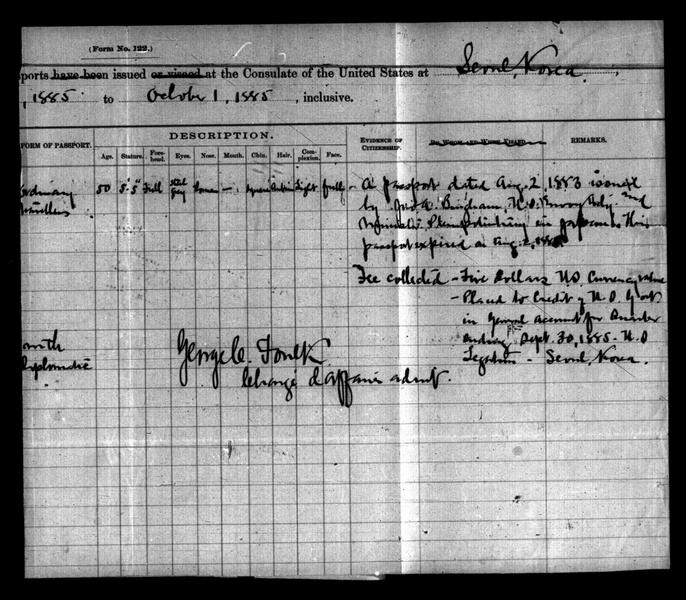 (Form No. 122.)
ports have been issued or vissed at the Consulate of the United States at Seoul, Korea.
, 1885 to October 1, 1885, inclusive.
FORM OF PASSPORT.
DESCRIPTION.
EVIDENCE OF CITIZENSHIP.
BY WHOM AND WHEN ISSUED.
REMARKS.
Age. Stature. Forehead. Eyes. Nose. Mouth. Chin. Hair. Complexion. Face.
ordinary
travellers
50 5' 5" Full Steel Grey Roman — square Auburn Light full
A passport dated Aug. 2, 1883 issued
by Jno. A. Bingham, U.S. Envoy Extry. and
Minister Plenipotentiary in Japan. This
passport expired on Aug. 2, 1885.
Fee collected — Five Dollars U.S. Currency value
— Placed to Credit of U.S. Govt.
in General Account for Quarter
ending Sept. 30, 1885 - U.S.
Legation — Seoul, Korea.
with
diplomatic
George C. Foulk
Chargé d'affaires ad int.